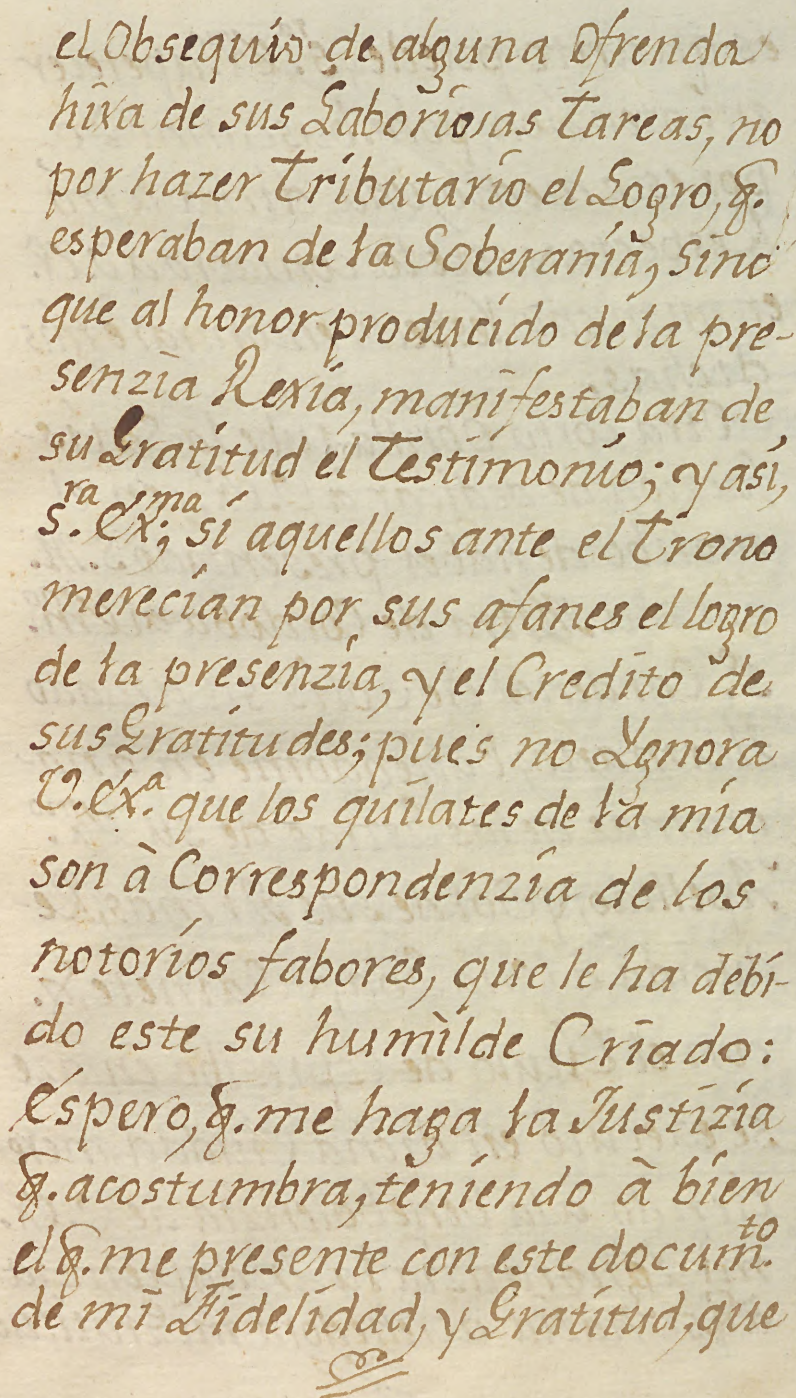 el Obsequio de alguna Ofrenda
hixa de sus Laboriosas tareas, no
por hazer tributario el Logro, q̃.
esperaban de la Soberanía, sino
que al honor producido de la pre-
senzia Rexia, manifestaban de
su Gratitud el testimonio; y asi,
S.ra Ex.ma; si aquellos ante el trono
merecian por sus afanes el logro
de la presenzia, y el Credito de
sus Gratitudes; pues no Ygnora
V. Ex.a que los quilates de la mia
son à Correspondenzia de los
notorios fabores, que le ha debi-
do este su humilde Criado:
Espero, q̃. me haga la Justizia
q̃. acostumbra, teniendo à bien
el q̃. me presente con este docum.to
de mi Fidelidad, y Gratitud, que